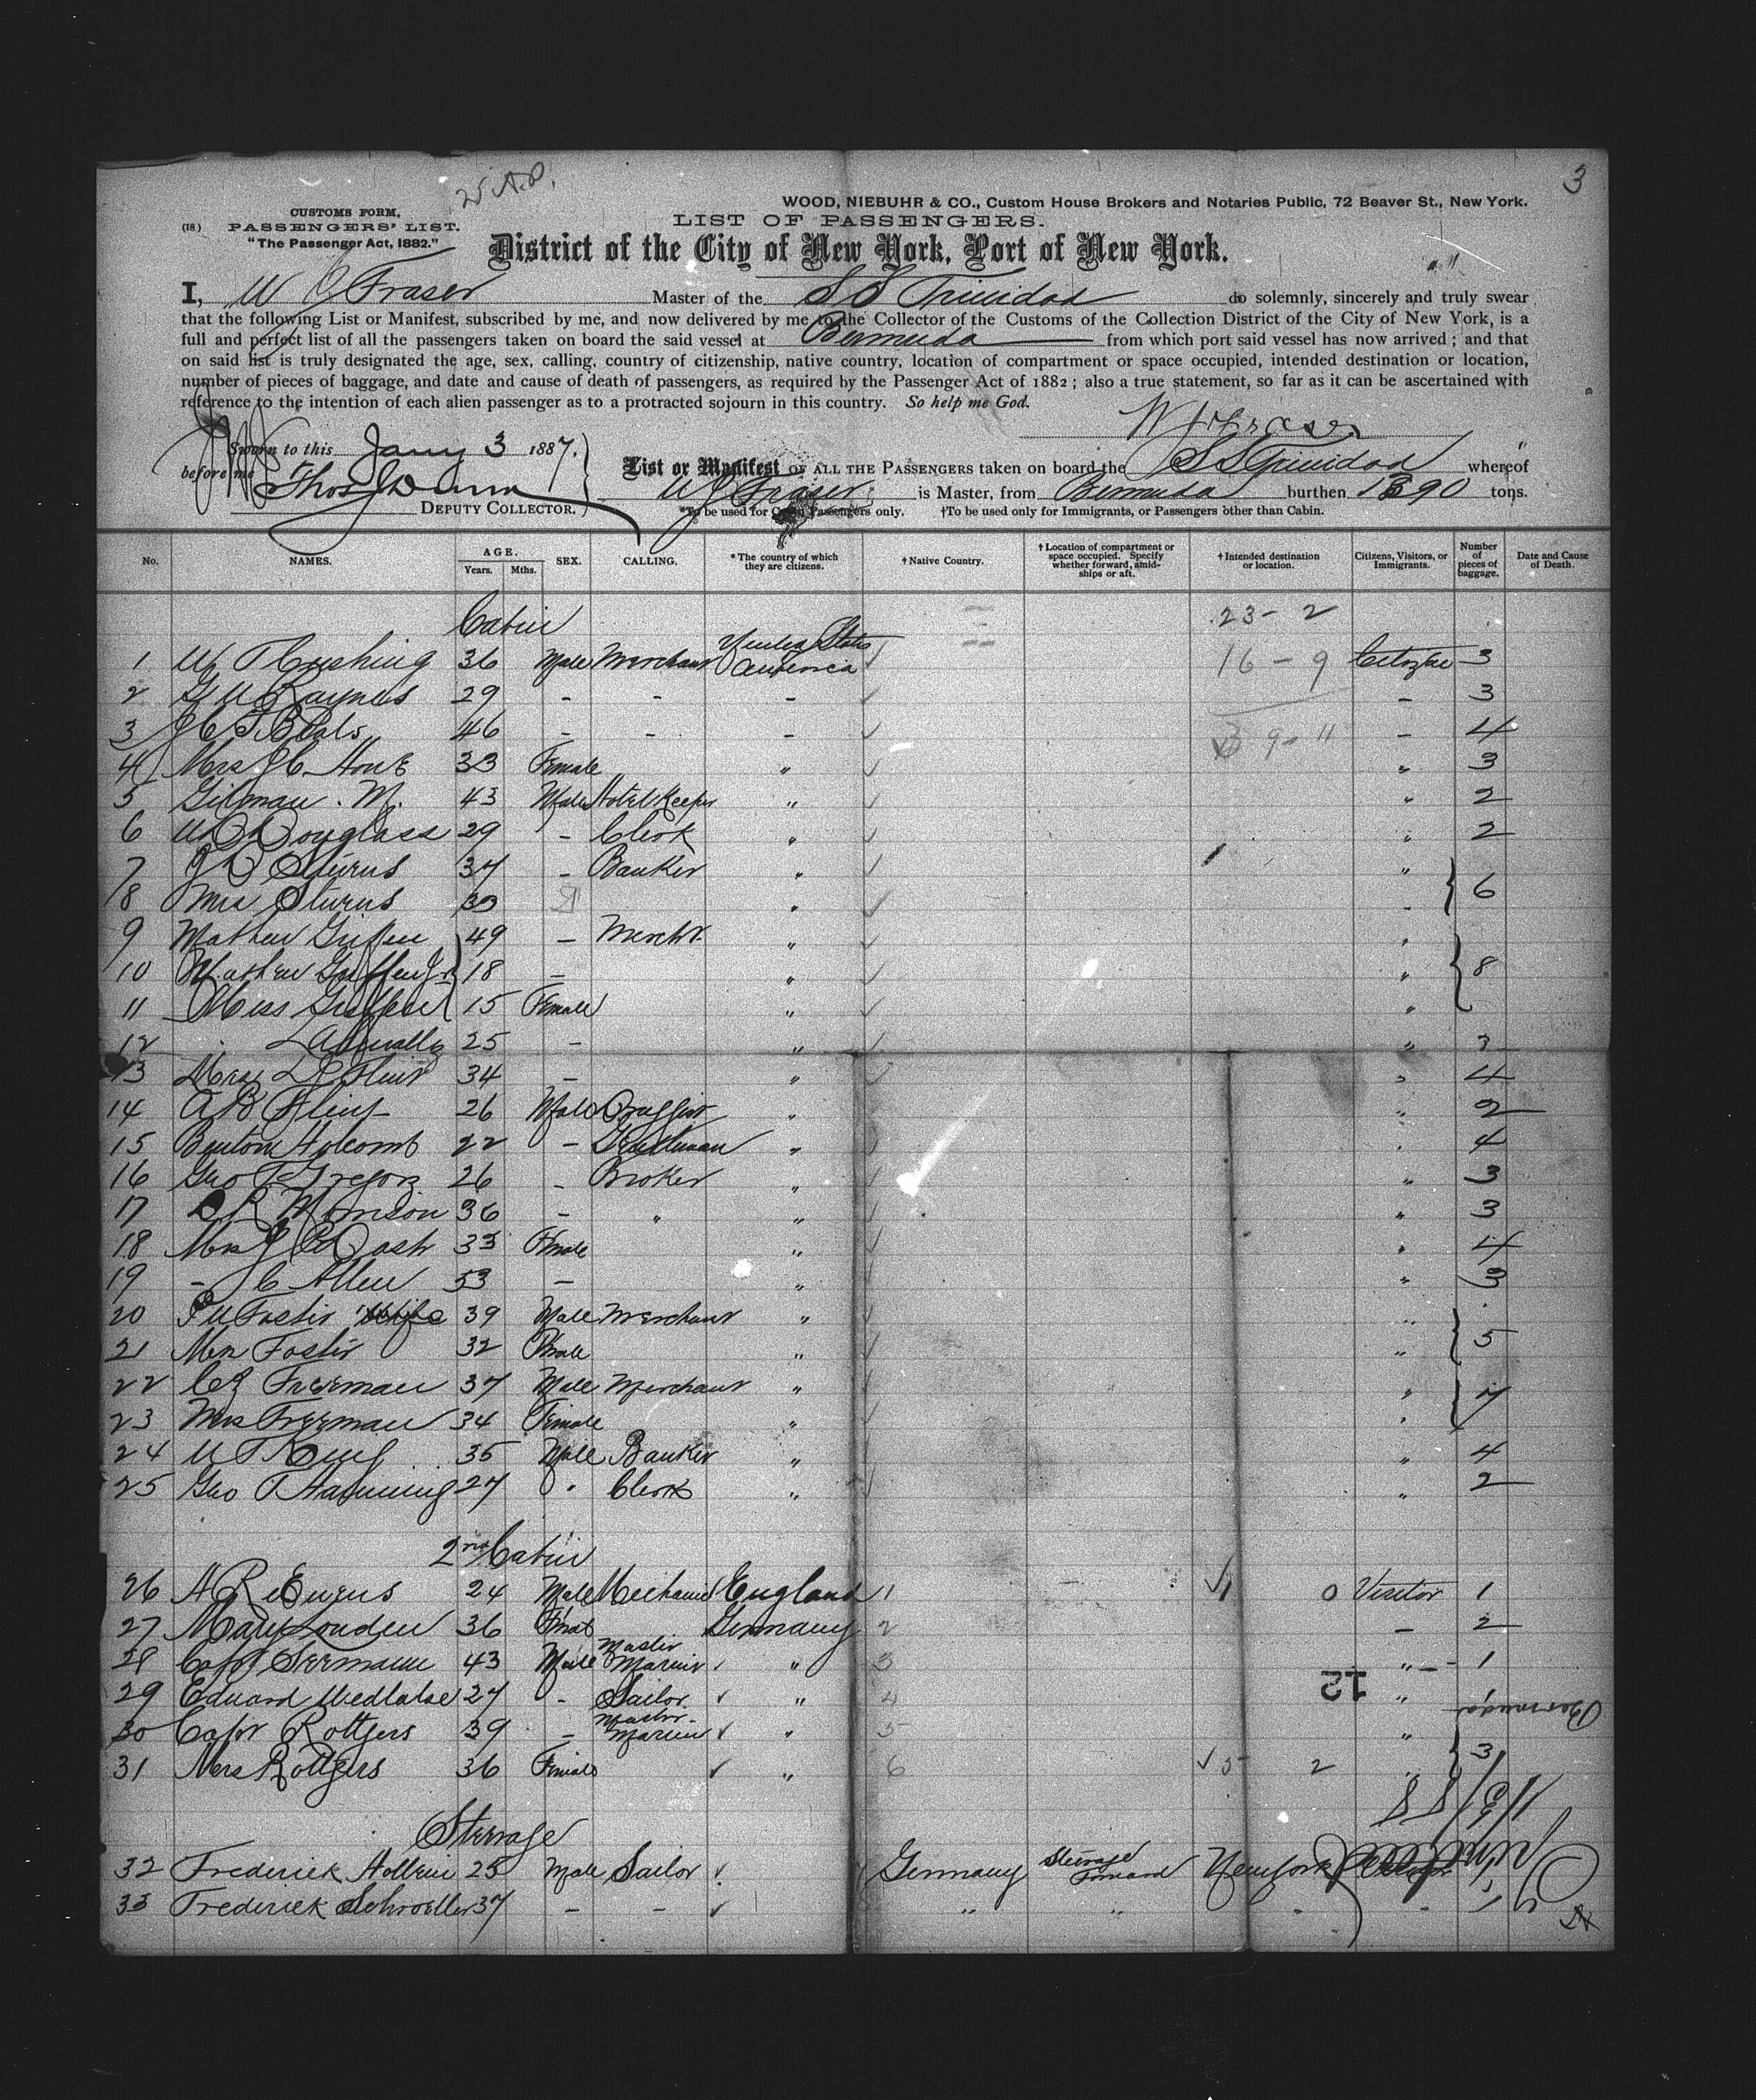 3
25 A.D.
WOOD, NIEBUHR & CO., Custom House Brokers and Notaries Public, 72 Beaver St., New York.
CUSTOMS FORM,
LIST OF PASSENGERS.
(18) PASSENGERS' LIST.
"The Passenger Act, 1882."
District of the City of New York, Port of New York.
I, W J Fraser Master of the S S Trinidad do solemnly, sincerely and truly swear
that the following List or Manifest, subscribed by me, and now delivered by me to the Collector of the Customs of the Collection District of the City of New York, is a
full and perfect list of all the passengers taken on board the said vessel at Bermuda from which port said vessel has now arrived ; and that
on said list is truly designated the age, sex, calling, country of citizenship, native country, location of compartment or space occupied, intended destination or location,
number of pieces of baggage, and date and cause of death of passengers, as required by the Passenger Act of 1882 ; also a true statement, so far as it can be ascertained with
reference to the intention of each alien passenger as to a protracted sojourn in this country. So help me God.
W J Fraser
Sworn to this Jany 3 1887.
before me Thos J Dunn
DEPUTY COLLECTOR.
List or Manifest OF ALL THE PASSENGERS taken on board the S S Trinidad whereof
W J Fraser is Master, from Bermuda burthen 1390 tons.
*To be used for Cabin Passengers only. †To be used only for Immigrants, or Passengers other than Cabin.
No. NAMES. AGE. Years. Mths. SEX. CALLING. *The country of which they are citizens. †Native Country. †Location of compartment or space occupied. Specify whether forward, amidships or aft. †Intended destination or location. Citizens, Visitors, or Immigrants. Number of pieces of baggage. Date and Cause of Death.
Cabin 23 - 2
1 W T Cushing 36 Male Merchant United States America 16 - 9 Citizen 3
2 G W Raynes 29 - - - - 3
3 J C F Beals 46 - - - 9 - 11 - 4
4 Mrs J C Hone 33 Female " " 3
5 Gilman . M. 43 Male Hotel Keeper " " 2
6 W D Douglass 29 - Clerk " " 2
7 J D Sturus 37 - Banker " " 6
8 Mrs Sturus 33 " "
9 Mathew Griffen 49 - Mercht. " " 8
10 Mathew Griffen Jr 18 - " "
11 Miss Griffen 15 Female " "
12 25 - " " 3
13 Mrs 34 - " " 4
14 A B Flint 26 Male Druggist " " 2
15 Benton Holcomb 22 - Gentleman " " 4
16 Geo T Gregory 26 - Broker " " 3
17 D R Morrison 36 - " " " 3
18 Mrs J Cash 33 Female " " 4
19 - C Allen 53 - " " 3
20 Foster 39 Male Merchant " " 5
21 Mrs Foster 32 Female " "
22 C J Freeman 37 Male Merchant " " 7
23 Mrs Freeman 34 Female " "
24 W T King 35 Male Banker " " 4
25 Geo T Hamming 27 " Clerk " " 2
2nd Cabin
26 A R Ewens 24 Male Mechanic England 1 1 0 Visitor 1
27 Mary Louden 36 Female Germany 2 - 2
28 Capt Seemann 43 Male Master Marin " 3 " 1
29 Eduard Wedlatse 27 - Sailor " 4 " 1
12
Bermuda
30 Capt Rottgers 39 - Master Marin " 5 " 3
31 Mrs Rottgers 36 Female " 6 5 2 "
Steerage
32 Frederick Hollrin 25 Male Sailor Germany Steerage Forward New York Visitor
33 Frederick Schroeller 37 - - " " " -